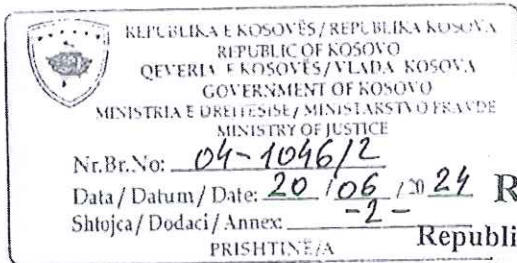 REPUBLIKA E KOSOVËS / REPUBLIKA KOSOVA
REPUBLIC OF KOSOVO
QEVERIA E KOSOVËS / VLADA KOSOVA
GOVERNMENT OF KOSOVO
MINISTRIA E DREJTËSISË / MINISTARSTVO PRAVDE
MINISTRY OF JUSTICE
Nr.Br.No: 04-1046/2
Data / Datum / Date: 20 / 06 / 20 24 R
Shtojca / Dodaci / Annex: -2-
Republi
PRISHTINË/A